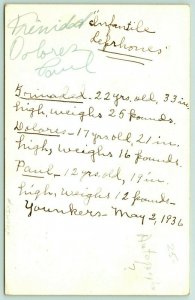 Trinidad
Dolores
Paul
"Infantile
dephones"
Trinidad - 22 yrs. old, 33 in.
high, weighs 25 pounds.
Dolores - 17 yrs old, 21 in.
high, weighs 16 pounds.
Paul - 12 yrs. old, 19 in.
high, weighs 12 pounds -
Younkers - May 2, 1936
25